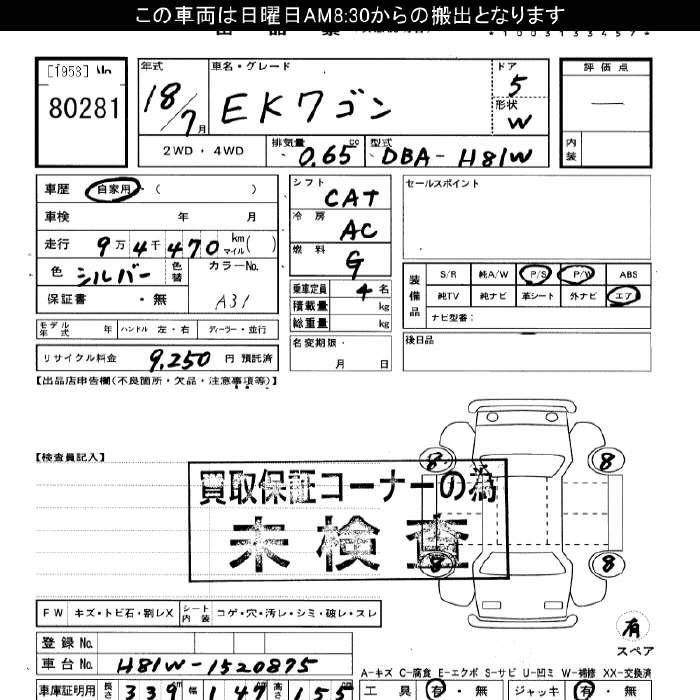 この車両は日曜日AM8:30からの搬出となります
*1003133457*
[1953]
80281
年式
18/7月
車名・グレード
EKワゴン
ドア
5
形状
W
評価点
―
内装
2WD・4WD
排気量
0.65 cc
型式
DBA-H81W
車歴 自家用 ( )
車検 年 月
走行 9万4千470 km マイル( )
色 シルバー 色替 カラーNo.
保証書 ・無 A31
シフト CAT
冷房 AC
燃料 G
乗車定員 4名
積載量 kg
総重量 kg
名変期限・
月 日
セールスポイント
装備品
S/R 純A/W P/S P/W ABS
純TV 純ナビ 革シート 外ナビ エアB
ナビ型番:
後日品
モデル年式 年 ハンドル 左・右 ディーラー・並行
リサイクル料金 9,250 円 預託済
【出品店申告欄(不良箇所・欠品・注意事項等)】
【検査員記入】
買取保証コーナーの為
未検査
8 8
8 8
有
スペア
FW キズ・トビ石・割レX シート内装 コゲ・穴・汚レ・シミ・破レ・スレ
登録No.
車台No. H81W-1520875
A-キズ C-腐食 E-エクボ S-サビ U-凹ミ W-補修 XX-交換済
車庫証明用 長さ 339 幅 147 高さ 155
工具 有・無 ジャッキ 有・無